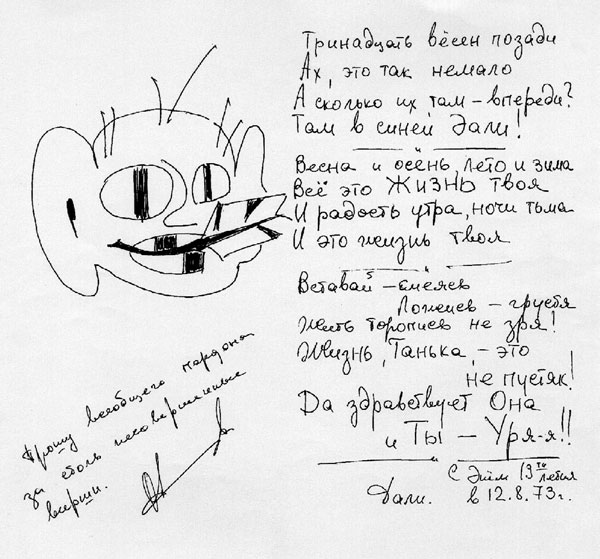 Тринадцать вёсен позади
Ах, это так немало
А сколько их там – впереди?
Там в синей дали!
Весна и осень, лето и зима
Всё это ЖИЗНЬ твоя
И радость утра, ночи тьма
И это жизнь твоя
Вставай – смеясь
Ложись – грустя
Жить торопись не зря!
Жизнь, Танька, – это
не пустяк!
Да здравствует Она
и Ты – Уря-я!!
С Днём 13ти летия
Дали. в 12.8.73г.
Прошу всеобщего пардона
за столь несовершенные
вирши.